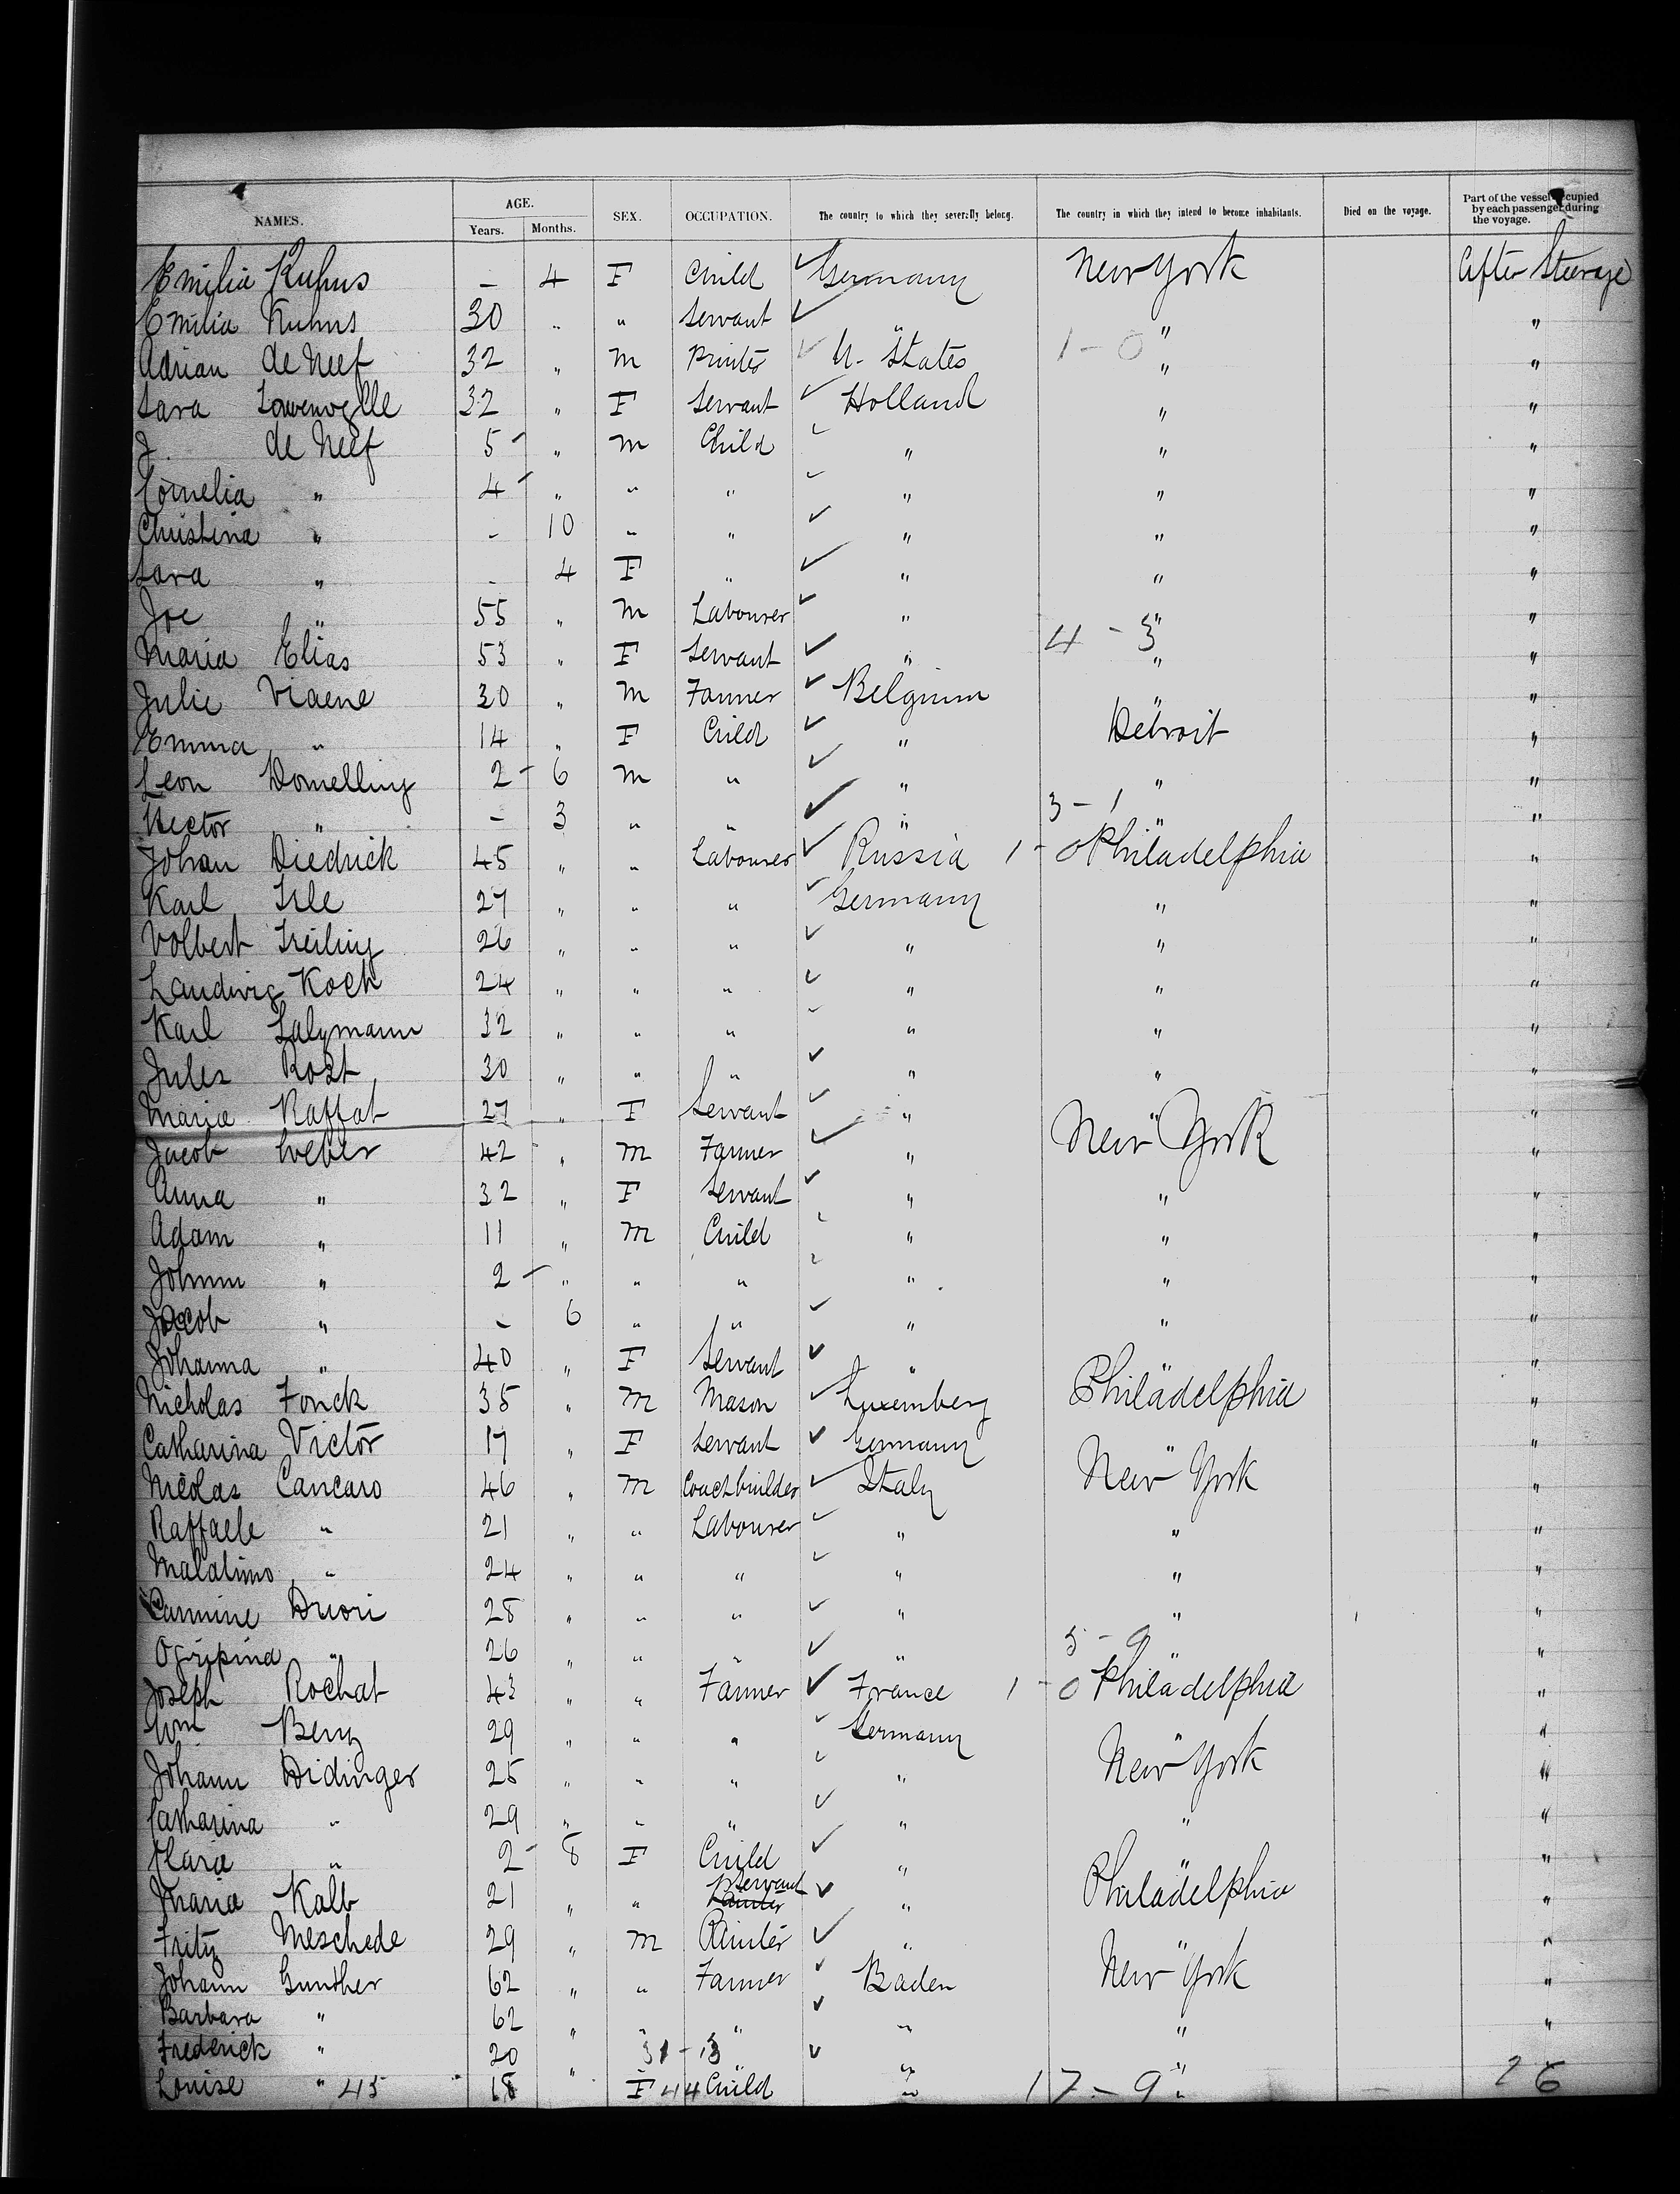 NAMES. AGE. Years. Months. SEX. OCCUPATION. The country to which they severally belong. The country in which they intend to become inhabitants. Died on the voyage. Part of the vessel occupied by each passenger during the voyage.
Emilia Kuhns - 4 F Child Germany New York After Steerage
Emilia Kuhns 30 " " Servant " " "
Adrian de Neef 32 " M Printer U. States 1-0 " "
Sara 32 " F Servant Holland " "
J. de Neef 5 " M Child " " "
Cornelia " 4 " " " " " "
Christina " - 10 " " " " "
Sara " - 4 F " " " "
Joe " 55 " M Labourer " " "
Maria Elias 53 " F Servant " 4-3 " "
Julie Viaene 30 " M Farmer Belgium " "
Emma " 14 " F Child " Detroit "
Leon Domelling 2 6 M " " " "
Hector " - 3 " " " 3-1 " "
Johan Diedrick 45 " " Labourer Russia 1-0 Philadelphia "
Karl Isle 27 " " " Germany " "
Volbert Freiling 26 " " " " " "
Laudwig Koch 24 " " " " " "
Karl Salzmann 32 " " " " " "
Jules Rost 30 " " " " " "
Maria Raffat 27 " F Servant " " "
Jacob Weber 42 " M Farmer " New York "
Anna " 32 " F Servant " " "
Adam " 11 " M Child " " "
Johann " 2 " " " " " "
Jacob " - 6 " " " " "
Johanna " 40 " F Servant " " "
Nicholas Fonck 35 " M Mason Luxemberg Philadelphia "
Catharina Victor 17 " F Servant Germany " "
Nicolas Cancaro 46 " M Coachbuilder Italy New York "
Raffaele " 21 " " Labourer " " "
Malalimo " 24 " " " " " "
Carmine Driori 28 " " " " " "
Ogripina " 26 " " " " 5-0 " "
Joseph Rochat 43 " " Farmer France 1-0 Philadelphia "
Wm Benz 29 " " " Germany " "
Johann Didinger 25 " " " " New York "
Catharina " 29 " " " " " "
Clara " 2 8 F Child " " "
Maria Kalb 21 " " Servant " Philadelphia "
Fritz Meschede 29 " M Painter " " "
Johann Gunther 62 " " Farmer Baden New York "
Barbara " 62 " " " " " "
Frederick " 20 " 31-13 " " "
Louise " 45 18 " F 44 Child " 17-9 " 26